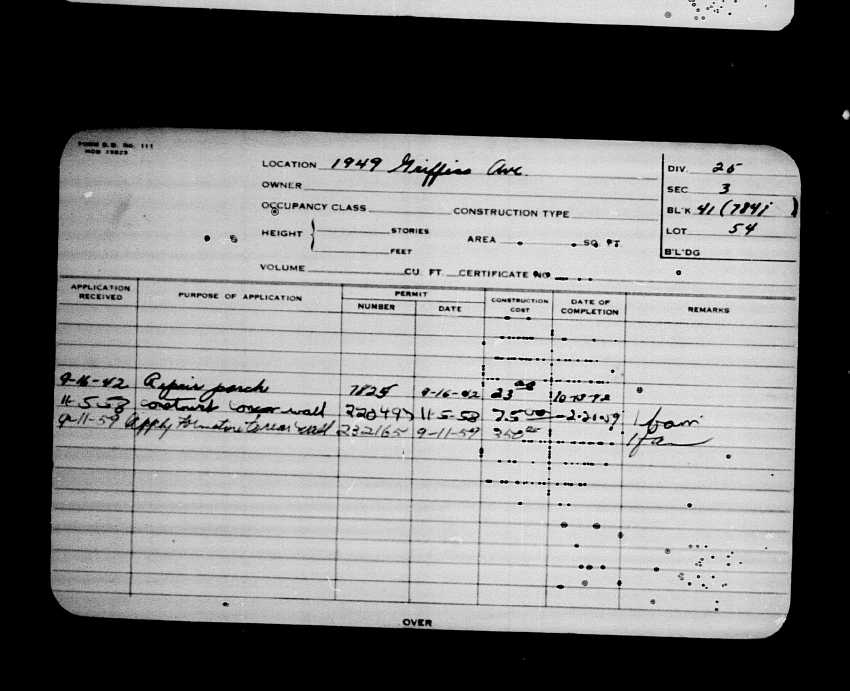 FORM B.D. No. 111
MOD 19825
LOCATION 1949 Griffiss Ave.
DIV. 25
OWNER
SEC 3
OCCUPANCY CLASS CONSTRUCTION TYPE
BL'K 41 (7841)
HEIGHT STORIES
FEET
AREA SQ. FT.
LOT 54
B'L'DG
VOLUME CU. FT. CERTIFICATE NO
APPLICATION RECEIVED PURPOSE OF APPLICATION PERMIT NUMBER DATE CONSTRUCTION COST DATE OF COMPLETION REMARKS
9-16-42 Repair porch 7825 9-16-42 23
11-5-58 construct rear wall 11-5-58 2-21-59 1 fam
9-11-59 Apply wall 232165 9-11-59 350 1 fam
OVER